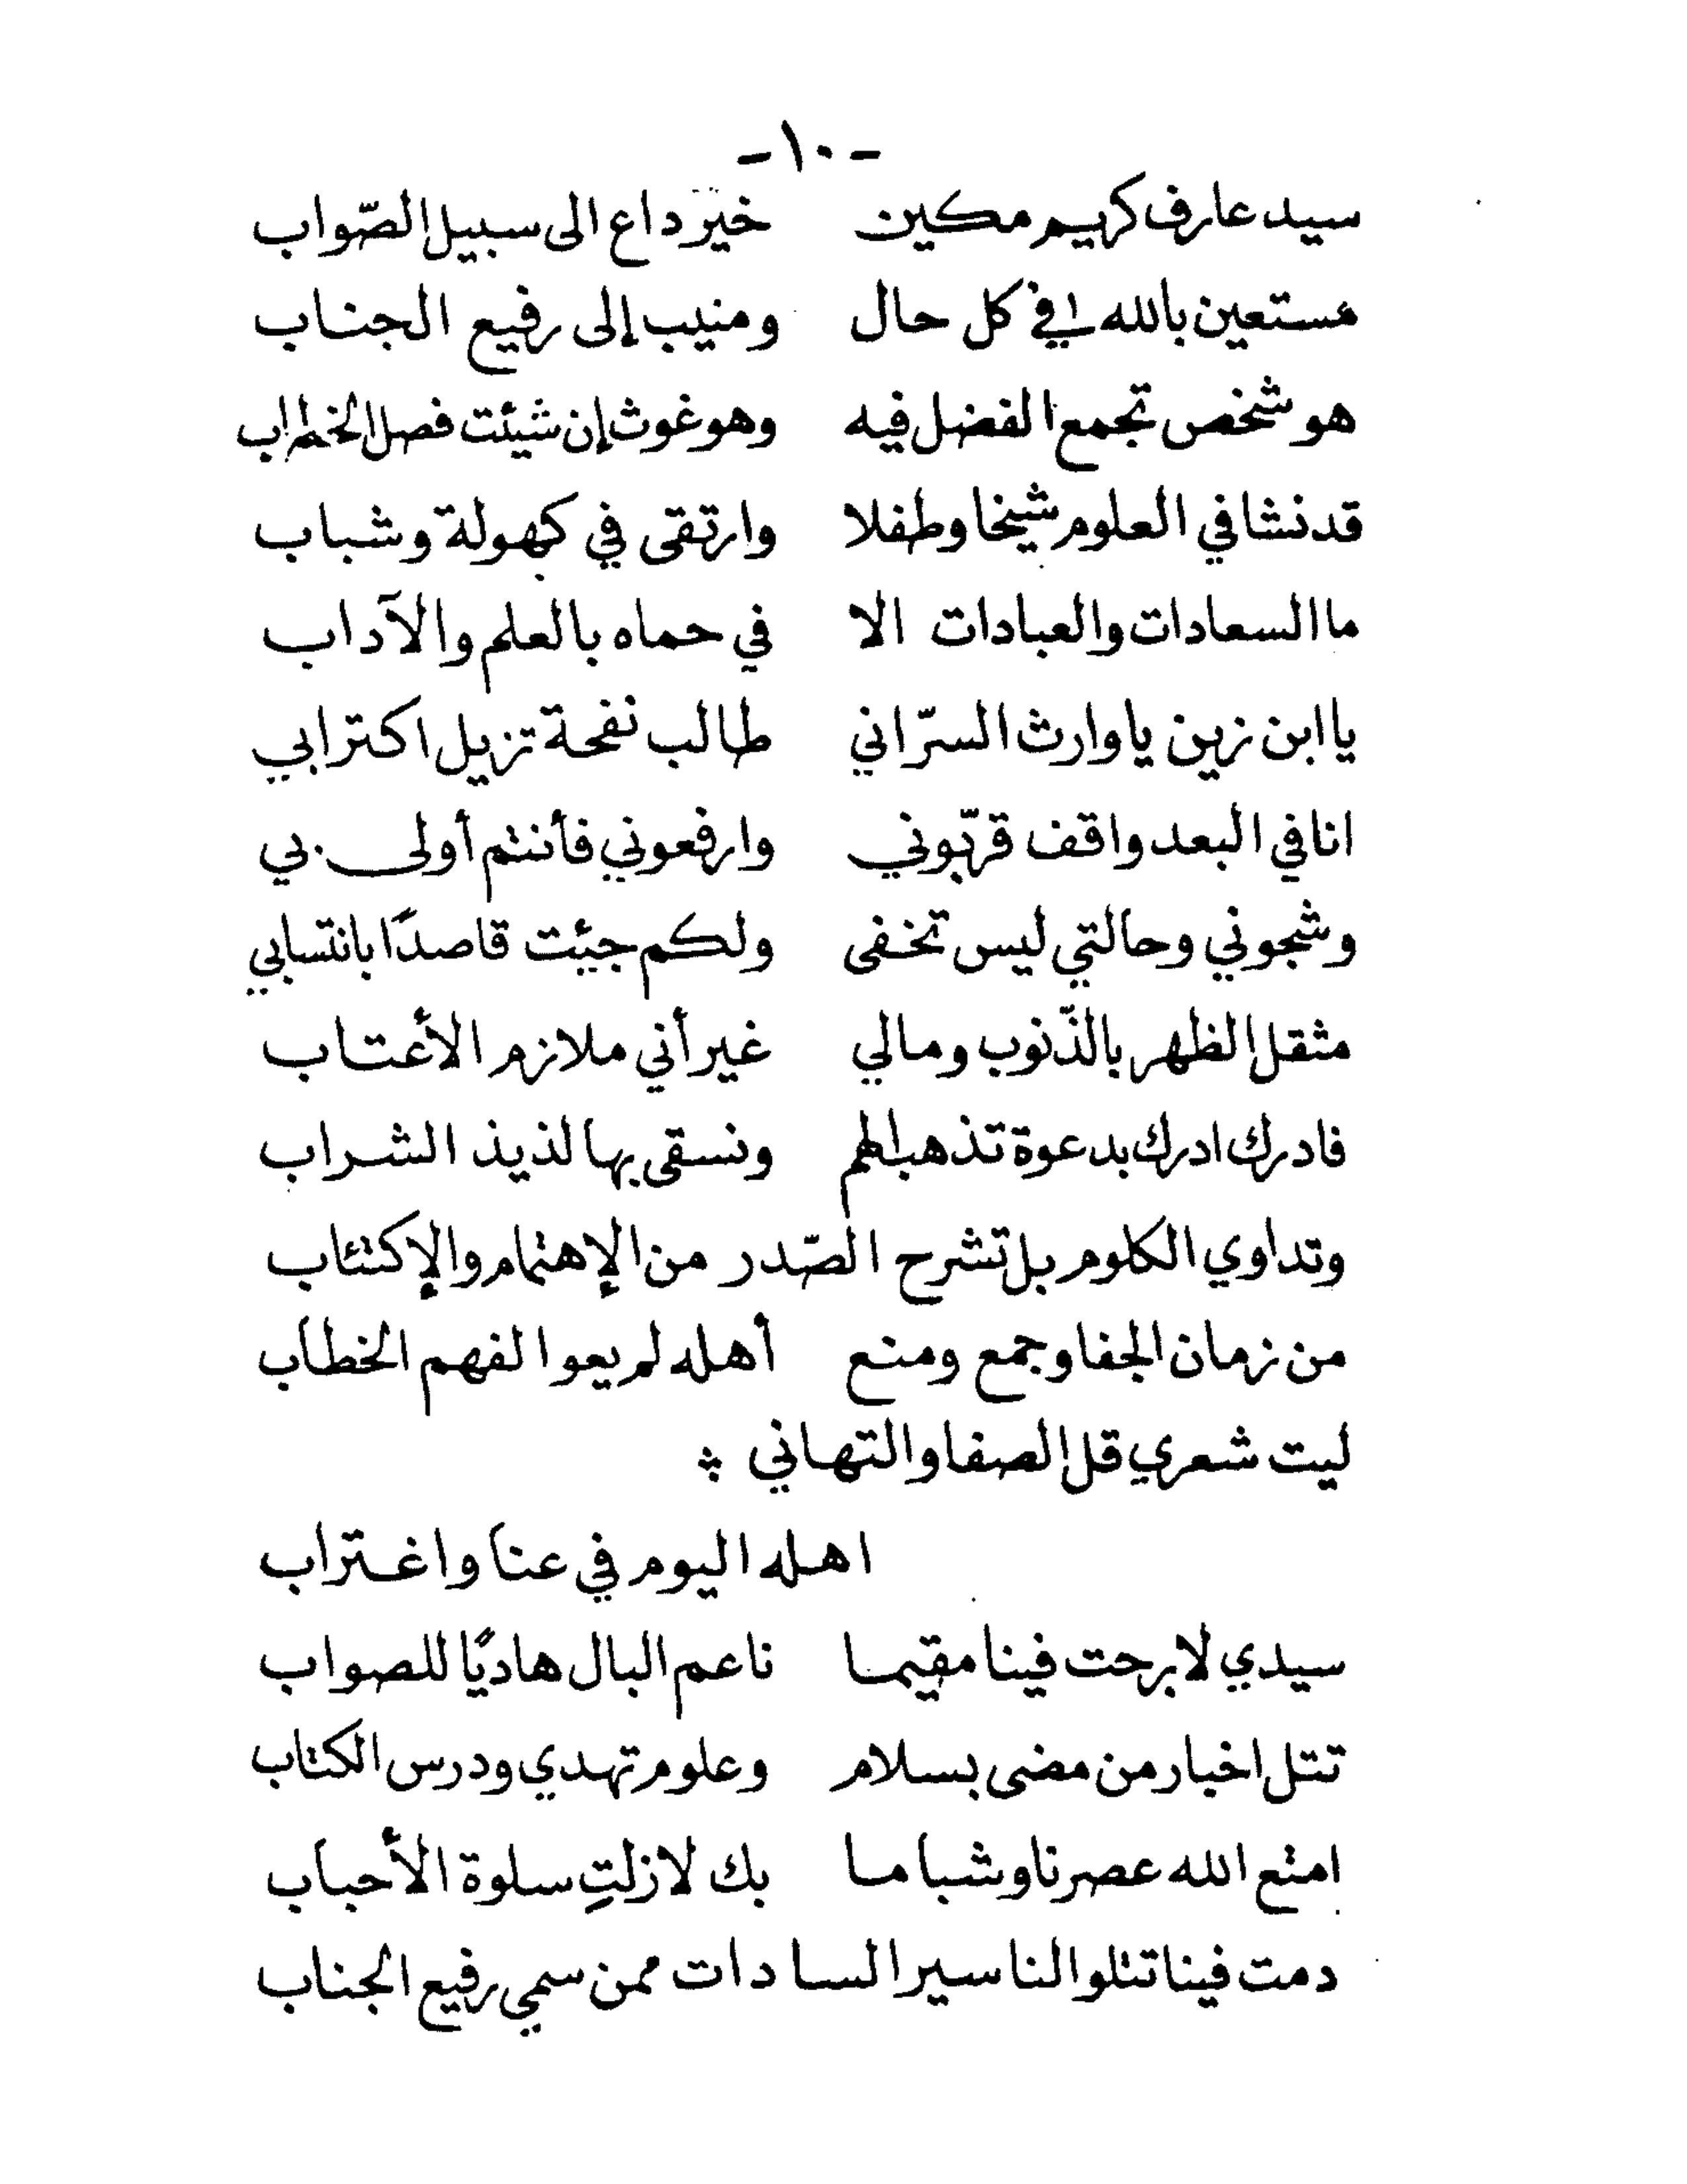 -١٠-
سيد عارف كريم مكين خير داع الى سبيل الصّواب
مستعين بالله في كل حال ومنيب إلى رفيع الجناب
هو شخص تجمع الفضل فيه وهو غوث إن شئت فصل الخطاب
قد نشا في العلوم شيخا وطفلا وارتقى في كهولة وشباب
ما السعادات والعبادات الا في حماه بالعلم والآداب
يا ابن زين يا وارث السرّ اني طالب نفحة تزيل اكترابي
انا في البعد واقف قرّبوني وارفعوني فأنتم أولى بي
وشجوني وحالتي ليس تخفى ولكم جئت قاصدًا بانتسابي
مثقل الظهر بالذّنوب ومالي غير أني ملازم الأعتاب
فادرك ادرك بدعوة تذهب الهم ونسقى بها لذيذ الشراب
وتداوي الكلوم بل تشرح الصّدر من الإهتمام والإكتئاب
من زمان الجفا وجمع ومنع أهله لم يعوا لفهم الخطاب
ليت شعري قل الصفا والتهاني
اهله اليوم في عنا واغتراب
سيدي لا برحت فينا مقيما ناعم البال هاديًا للصواب
تتل اخبار من مضى بسلام وعلوم تهدي ودرس الكتاب
امتع الله عصرنا وشباما بك لازلتِ سلوة الأحباب
دمت فينا تتلو النا سير السادات ممن سمي رفيع الجناب